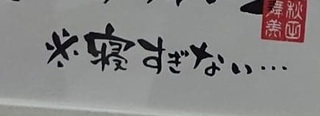 ※寝すぎない…
秋田
舞美